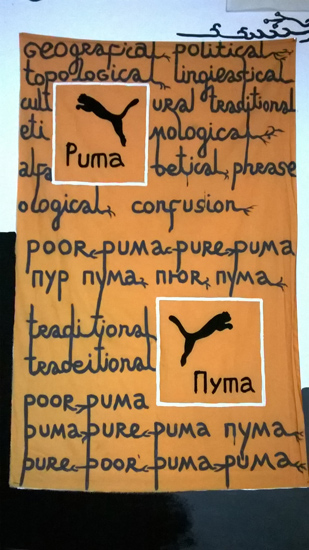 Geografical political
topological lingieastical
cult ural traditional
eti mological
Puma
alfa betical phrase
ological confusion
poor puma pure puma
пур пума пюр пума
traditional
tradeitional
Пума
poor puma
puma pure puma пума
pure poor puma puma